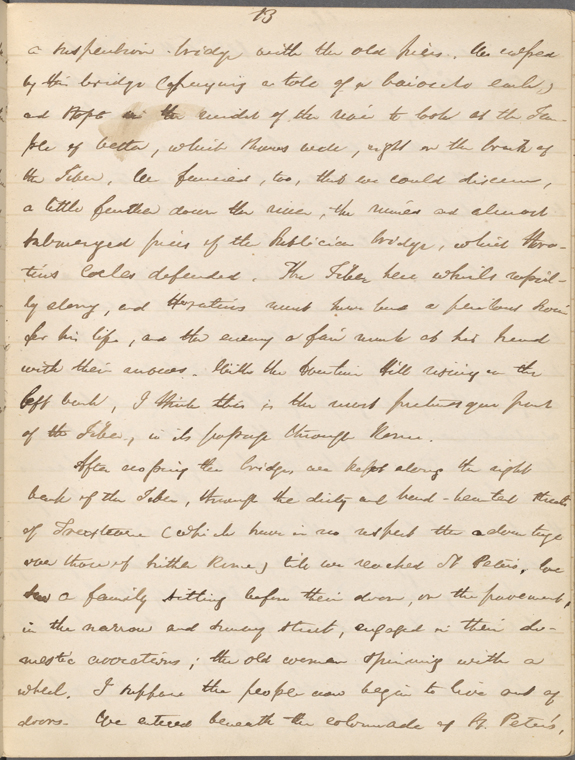 13
a suspension-bridge with the old piers. We crossed
by this bridge (paying a tole of a baioccho each,)
and stopt in the midst of the river to look at the Tem-
ple of Vesta, which shows well, right on the brink of
the Tiber. We fancied, too, that we could discern,
a little farther down the river, the ruined and almost
submerged piers of the Publician bridge, which Hora-
tius Cocles defended. The Tiber here whirls rapid-
ly along, and Horatius must have had a perilous swim
for his life, and the enemy a fair mark at his head
with their arrows. With the Aventine Hill rising on the
left bank, I think this is the most picturesque part
of the Tiber, in its passage through Rome.
After crossing the bridge, we kept along the right
bank of the Tiber, through the dirty and hard-hearted streets
of Trastevere (which have in no respect the advantage
over those of hither Rome,) till we reached St Peter's. We
saw a family sitting before their door, on the pavement,
in the narrow and sunny street, engaged in their do-
mestic avocations; the old woman spinning with a
wheel. I suppose the people now begin to live out of
doors. We entered beneath the colonnade of St. Peter's,